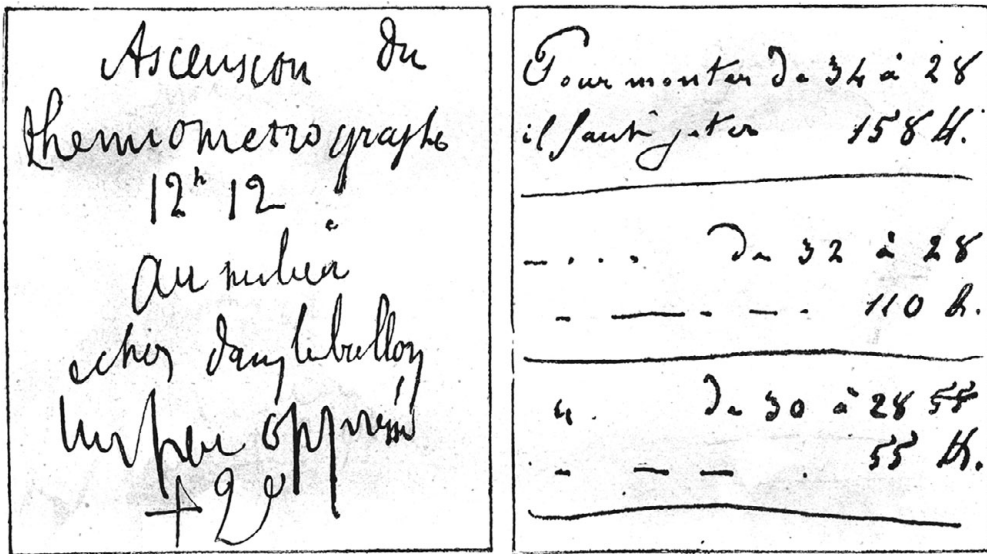 Ascension du
thermometrographe
12h 12
au milieu
echos dans le ballon
un peu oppressé
+ 2°
Pour monter de 34 à 28
il faut jeter 158 k.
- . . . de 32 à 28
- — - — . 110 k.
". de 30 à 28 55
- — — . 55 k.